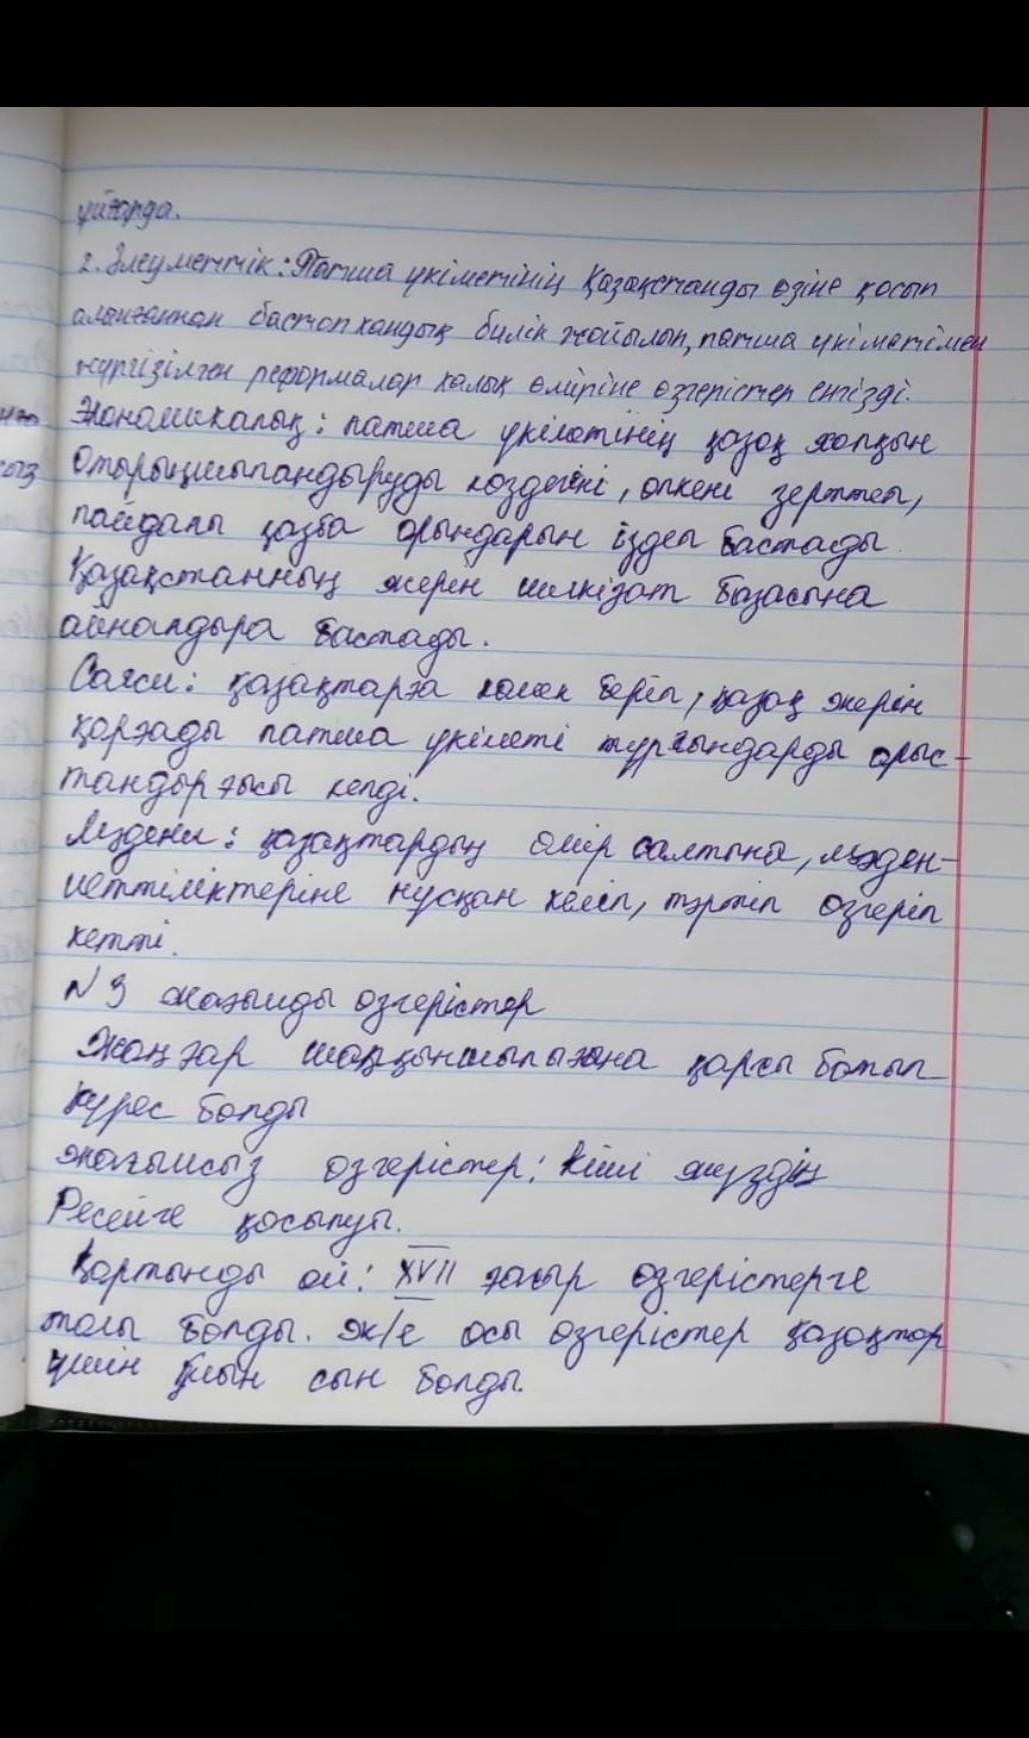 ұйғарда.
2. Әлеуметтік: Патша үкіметінің Қазақстанды өзіне қосып
алынғаннан бастап хандық билік жойылып, патша үкіметімен
жүргізілген реформалар халық өміріне өзгерістер енгізді.
Экономикалық: патша үкіметінің қазақ халқын
отырықшыландыруды көздегені, өлкені зерттеп,
пайдалы қазба орындарын іздей бастады.
Қазақстанның жерін шикізат базасына
айналдыра бастады.
Саяси: қазақтарға көмек беріп, қазақ жерін
қорғады патша үкіметі тұрғындарды орыс-
тандырғысы келді.
Мәдени: қазақтардың өмір салтына, мәден-
иеттіліктеріне нұсқан келіп, тәртіп өзгеріп
кетті.
N 3 жағымды өзгерістер
Жоңғар шапқыншылығына қарсы батыл
күрес болды
жағымсыз өзгерістер: Кіші жүздің
Ресейге қосылуы.
Қортынды ой: XVII ғасыр өзгерістерге
толы болды. ж/е осы өзгерістер қазақтар
үшін қиын сын болды.